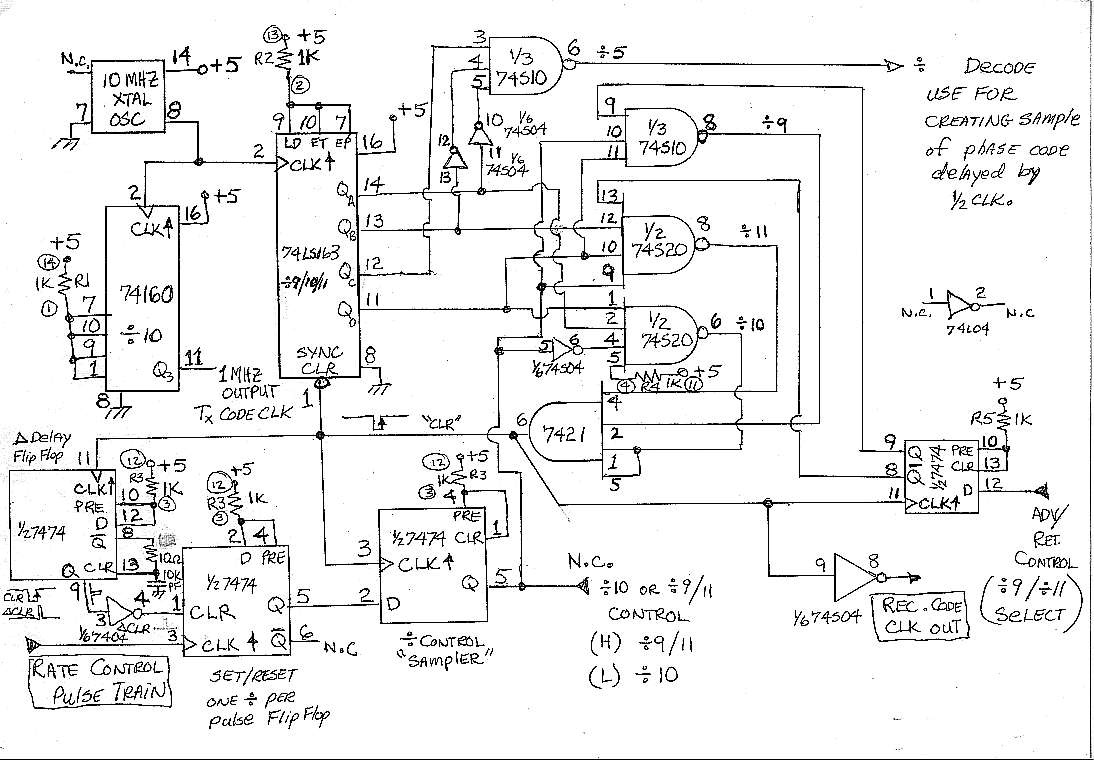 N.C.
14
+5
10 MHZ
XTAL
OSC
7
8
2
CLK↑
16
+5
+5
⑭
1K
R1
①
7
10
9
1
74160
÷10
Q3
11
8
1 MHZ
OUTPUT
TX CODE CLK
⑬
+5
R2
1K
②
9
10
7
LD ET EP
2
CLK↑
16
+5
QA
14
QB
13
QC
12
QD
11
74LS163
÷9/10/11
SYNC
CLR
8
1
"CLR"
3
4
5
1/3
74S10
6
÷5
÷ DECODE
USE FOR
CREATING SAMPLE
of phASE CODE
delayed by
1/2 CLK.
10
1/6
74S04
11
12
13
1/6
74S04
9
10
11
1/3
74S10
8
÷9
13
12
10
9
1/2
74S20
8
÷11
1
2
4
5
1/2
74S20
6
÷10
5
6
1/6 74S04
④
R4
1K
⑪
+5
6
7421
4
2
1
5
N.C.
1
2
N.C
74L04
+5
R5
1K
9
Q
8
Q
11
CLK↑
1/2 7474
PRE
10
CLR
13
D
12
ADV/
RET.
CONTROL
(÷9/÷11)
SELECT
9
8
1/6 74S04
REC. CODE
CLK OUT
Δ Delay
Flip Flop
11
CLK↑
PRE
10
D
12
Q
8
CLR
13
Q
9
1/2 7474
⑫
+5
R3
1K
③
10K
CLR
ΔCLR
3
4
1/6 7404
ΔCLR
⑫
+5
R3
1K
③
2
4
D PRE
1/2 7474
1
CLR
3
CLK↑
Q
5
Q
6
N.C
RATE CONTROL
PULSE TRAIN
SET/RESET
ONE ÷ PER
pulse Flip Flop
⑫
+5
1K
R3
③
4
PRE
1
CLR
1/2 7474
3
CLK↑
2
D
Q
5
÷ CONTROL
"SAMPLER"
N.C.
÷10 OR ÷9/11
CONTROL
(H) ÷9/11
(L) ÷10